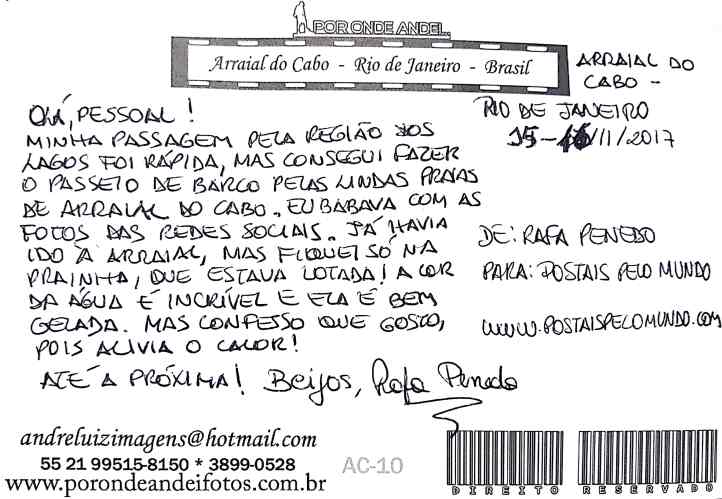 POR ONDE ANDEI...
Arraial do Cabo - Rio de Janeiro - Brasil
ARRAIAL DO
CABO -
RIO DE JANEIRO
15-16/11/2017
OLÁ, PESSOAL!
MINHA PASSAGEM PELA REGIÃO DOS
LAGOS FOI RÁPIDA, MAS CONSEGUI FAZER
O PASSEIO DE BARCO PELAS LINDAS PRAIAS
DE ARRAIAL DO CABO. EU BABAVA COM AS
FOTOS DAS REDES SOCIAIS. JÁ HAVIA
IDO À ARRAIAL, MAS FIQUEI SÓ NA
PRAINHA, QUE ESTAVA LOTADA! A COR
DA ÁGUA É INCRÍVEL E ELA É BEM
GELADA. MAS CONFESSO QUE GOSTO,
POIS ALIVIA O CALOR!
ATÉ A PRÓXIMA! Beijos, Rafa Penedo
DE: RAFA PENEDO
PARA: POSTAIS PELO MUNDO
WWW.POSTAISPELOMUNDO.COM
andreluizimagens@hotmail.com
55 21 99515-8150 * 3899-0528
www.porondeandeifotos.com.br
AC-10
DIREITO RESERVADO